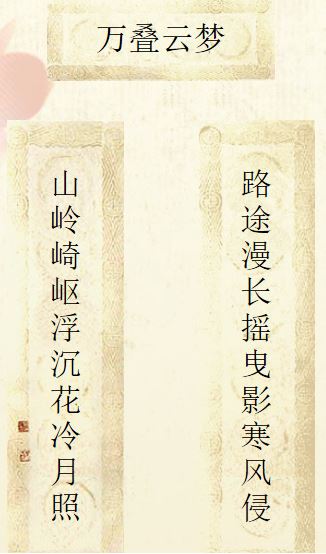 万叠云梦
路途漫长摇曳影寒风侵
山岭崎岖浮沉花冷月照